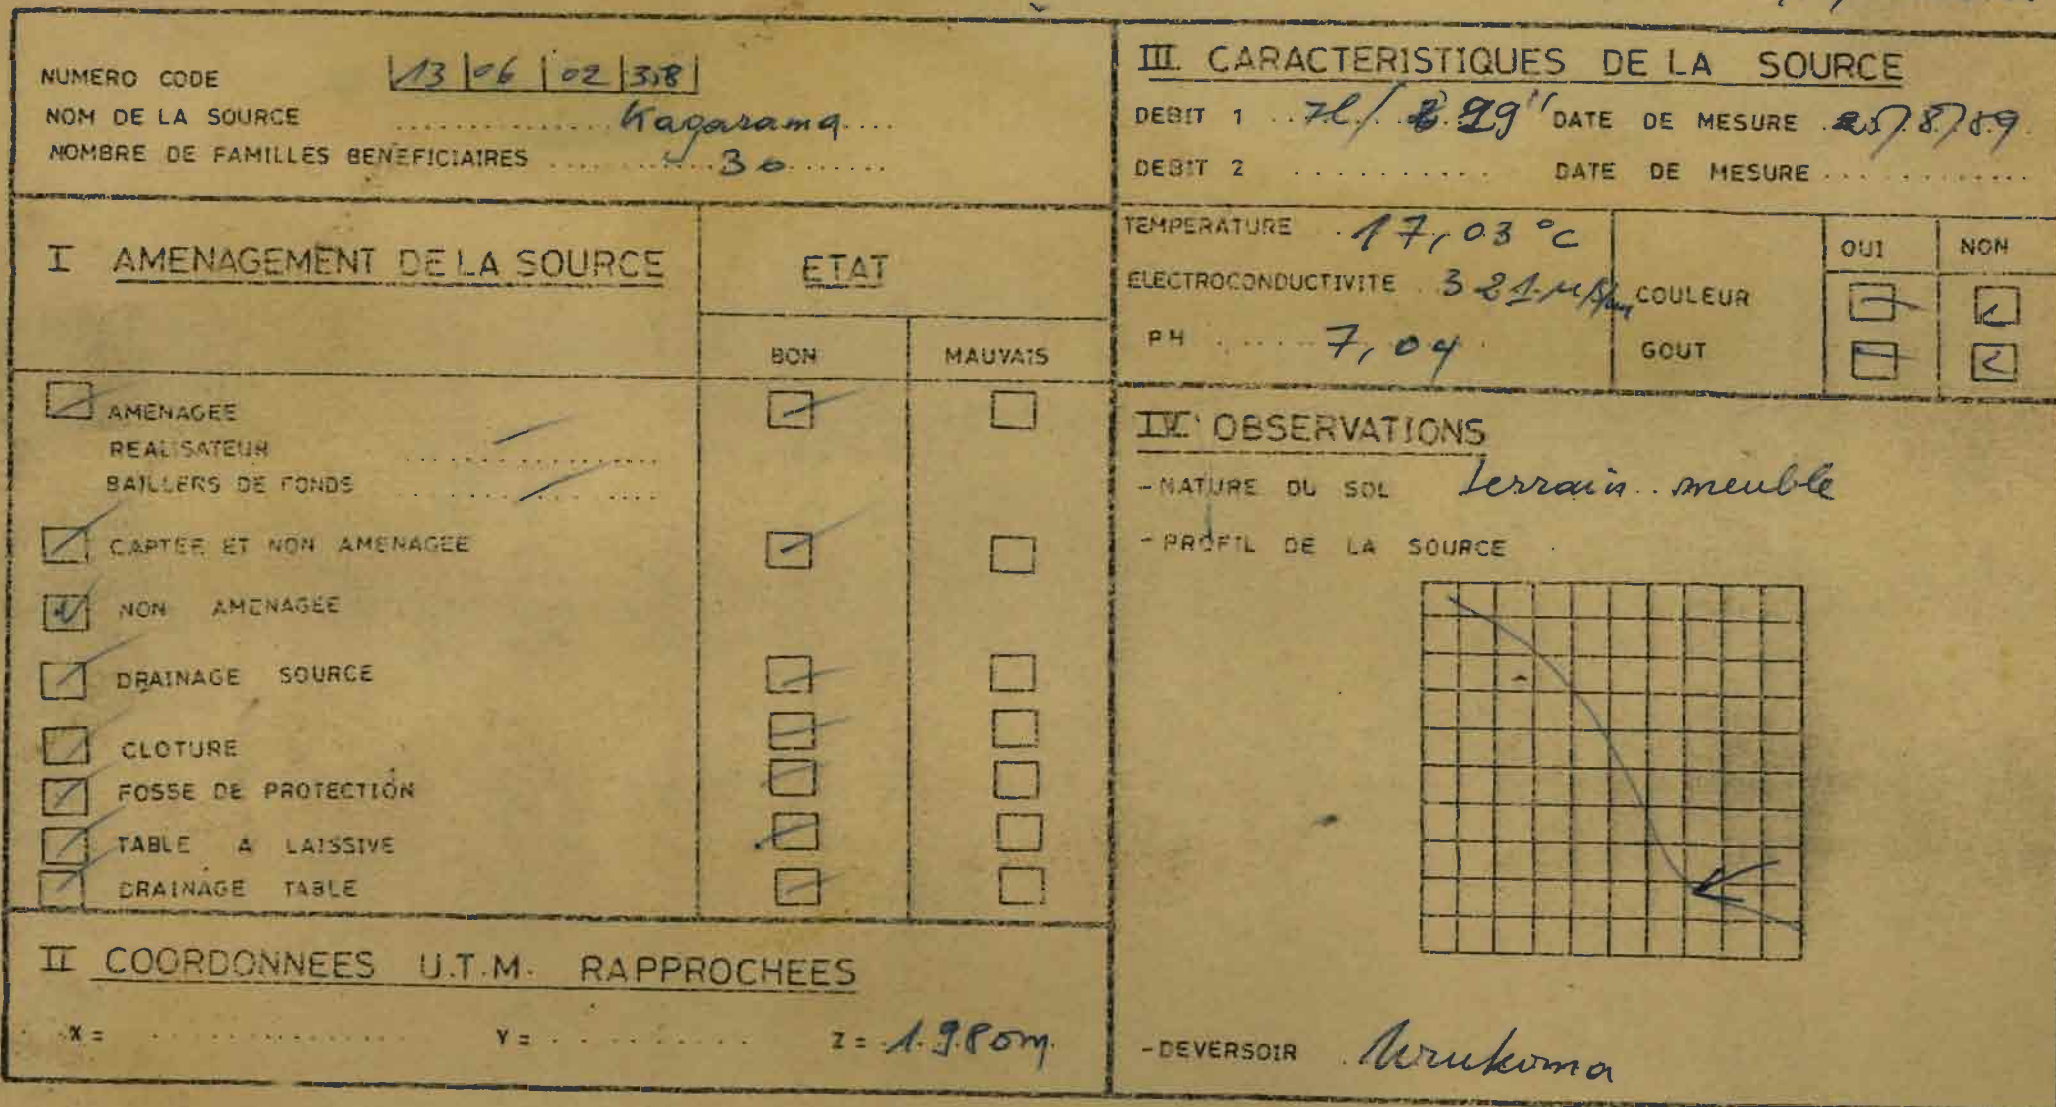 NUMERO CODE |13|06|02|338|
NOM DE LA SOURCE .............. Kagarama....
NOMBRE DE FAMILLES BENEFICIAIRES ......... 30.......
I AMENAGEMENT DE LA SOURCE
ETAT
BON MAUVAIS
AMENAGEE
REALISATEUR ..................
BAILLERS DE FONDS ..................
CAPTEE ET NON AMENAGEE
NON AMENAGEE
DRAINAGE SOURCE
CLOTURE
FOSSE DE PROTECTION
TABLE A LAISSIVE
DRAINAGE TABLE
II COORDONNEES U.T.M. RAPPROCHEES
X = .............. Y = .......... Z = 1.980m.
III. CARACTERISTIQUES DE LA SOURCE
DEBIT 1 ..7l/ 29" DATE DE MESURE 25/8/89
DEBIT 2 .......... DATE DE MESURE ............
TEMPERATURE . 17,03 °C
ELECTROCONDUCTIVITE . 321 µS/cm
PH ..... 7,04
OUI NON
COULEUR
GOUT
IV. OBSERVATIONS
- NATURE DU SOL terrain meuble
- PROFIL DE LA SOURCE
- DEVERSOIR . Urukoma